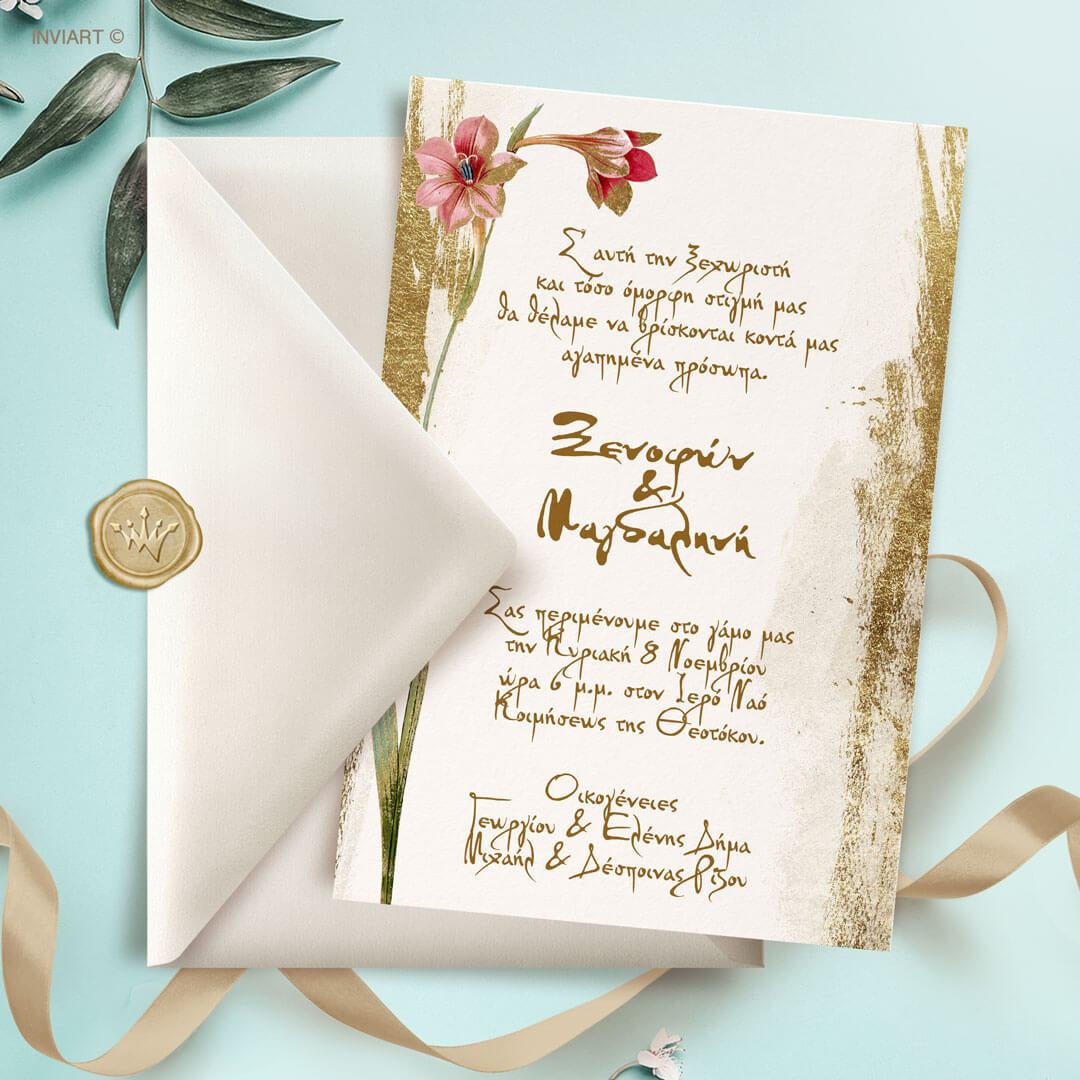 INVIART ©
Σ' αυτή την ξεχωριστή
και τόσο όμορφη στιγμή μας
θα θέλαμε να βρίσκονται κοντά μας
αγαπημένα πρόσωπα.
Ξενοφών
&
Μαγδαληνή
Σας περιμένουμε στο γάμο μας
την Κυριακή 8 Νοεμβρίου
ώρα 6 μ.μ. στον Ιερό Ναό
Κοιμήσεως της Θεοτόκου.
Οικογένειες
Γεωργίου & Ελένης Δήμα
Μιχαήλ & Δέσποινας Ρίζου